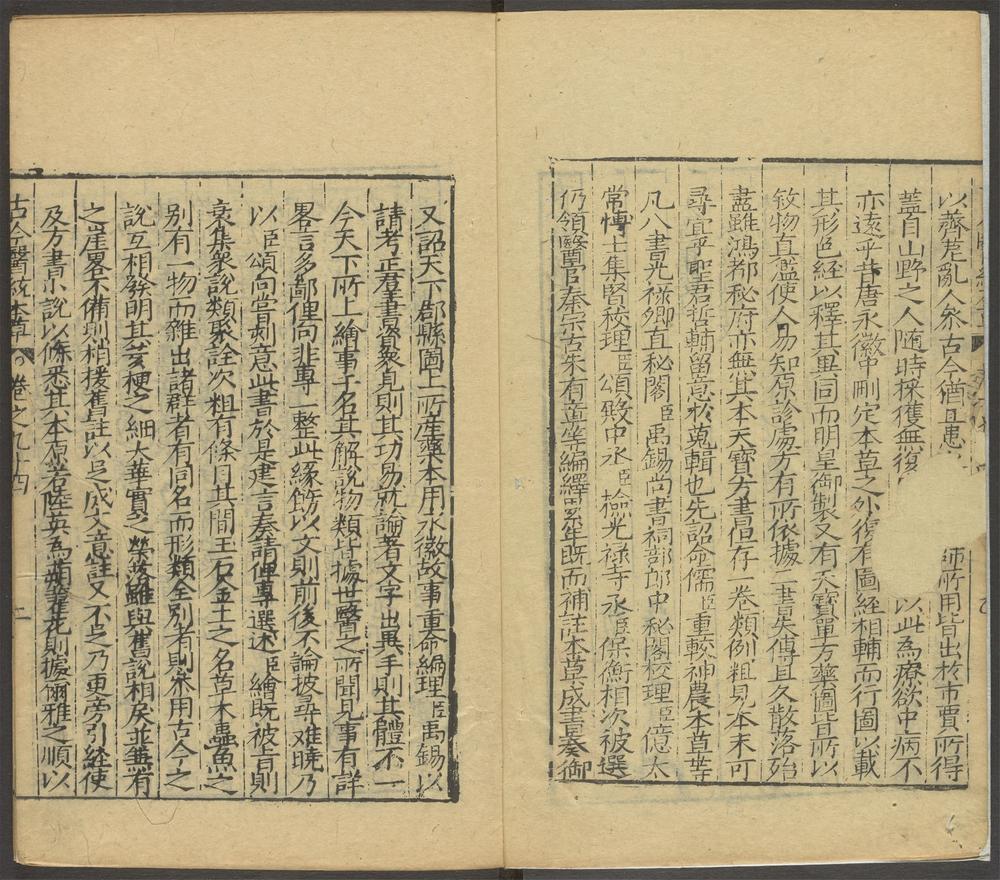 以薺苨亂人參古今猶且患
師所用皆出於市賈所得
蓋自山野之人随時採獲無復
以此為療欲中病不
亦遠乎昔唐永徽中刪定本草之外復有圖經相輔而行圖以載
其形色經以釋其異同而明皇御製又有天寶單方藥圖皆所以
敘物真濫使人易知原診處方有所依據二書失傳且久散落殆
盡雖鴻都秘府亦無其本天寶方書但存一卷類例粗見本末可
尋宜乎聖君哲輔留意於蒐輯也先詔命儒臣重較神農本草等
凡八書光禄卿直秘閣臣禹錫尚書祠部郎中秘閣校理臣億太
常慱士集賢校理臣頌殿中丞臣檢光禄寺丞臣保衡相次被選
仍領醫官秦宗古朱有章等編繹累年既而補註本草成書奏御
又詔天下郡縣圖上所産藥本用永徽故事重命編理臣禹錫以
請考正羣書資衆見則其功易就論著文字出異手則其體不一
今天下所上繪事千名其解說物類皆據世醫之所聞見事有詳
畧言多鄙俚向非專一整此緣飭以文則前後不論披尋难曉乃
以臣頌向嘗刻意此書於是建言奏請俾專選述臣繪既被旨則
裒集衆説類聚詮次粗有條目其間玉石金土之名草木蟲魚之
别有一物而雜出諸群者有同名而形類全别者則叅用古今之
説互相發明其荄梗之細大華實之榮落雖與舊說相戾並兼有
之崖畧不備則稍援舊註以足成文意註又不足乃更旁引経使
及方書小說以條悉其本原若陸英為蒴藋花則據爾雅之順以
古今醫統本草 卷之九十四 二